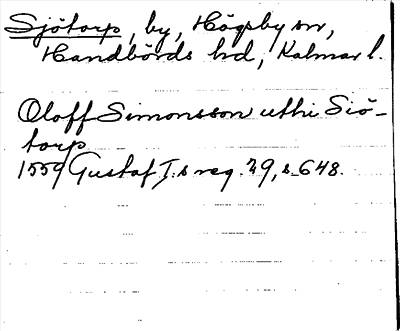 Sjötorp, by, Högsby sn,
Handbörds hd, Kalmar l.
Oloff Simonsson uthi Siö-
torp
1559 Gustaf I:s reg. 29, s. 648.